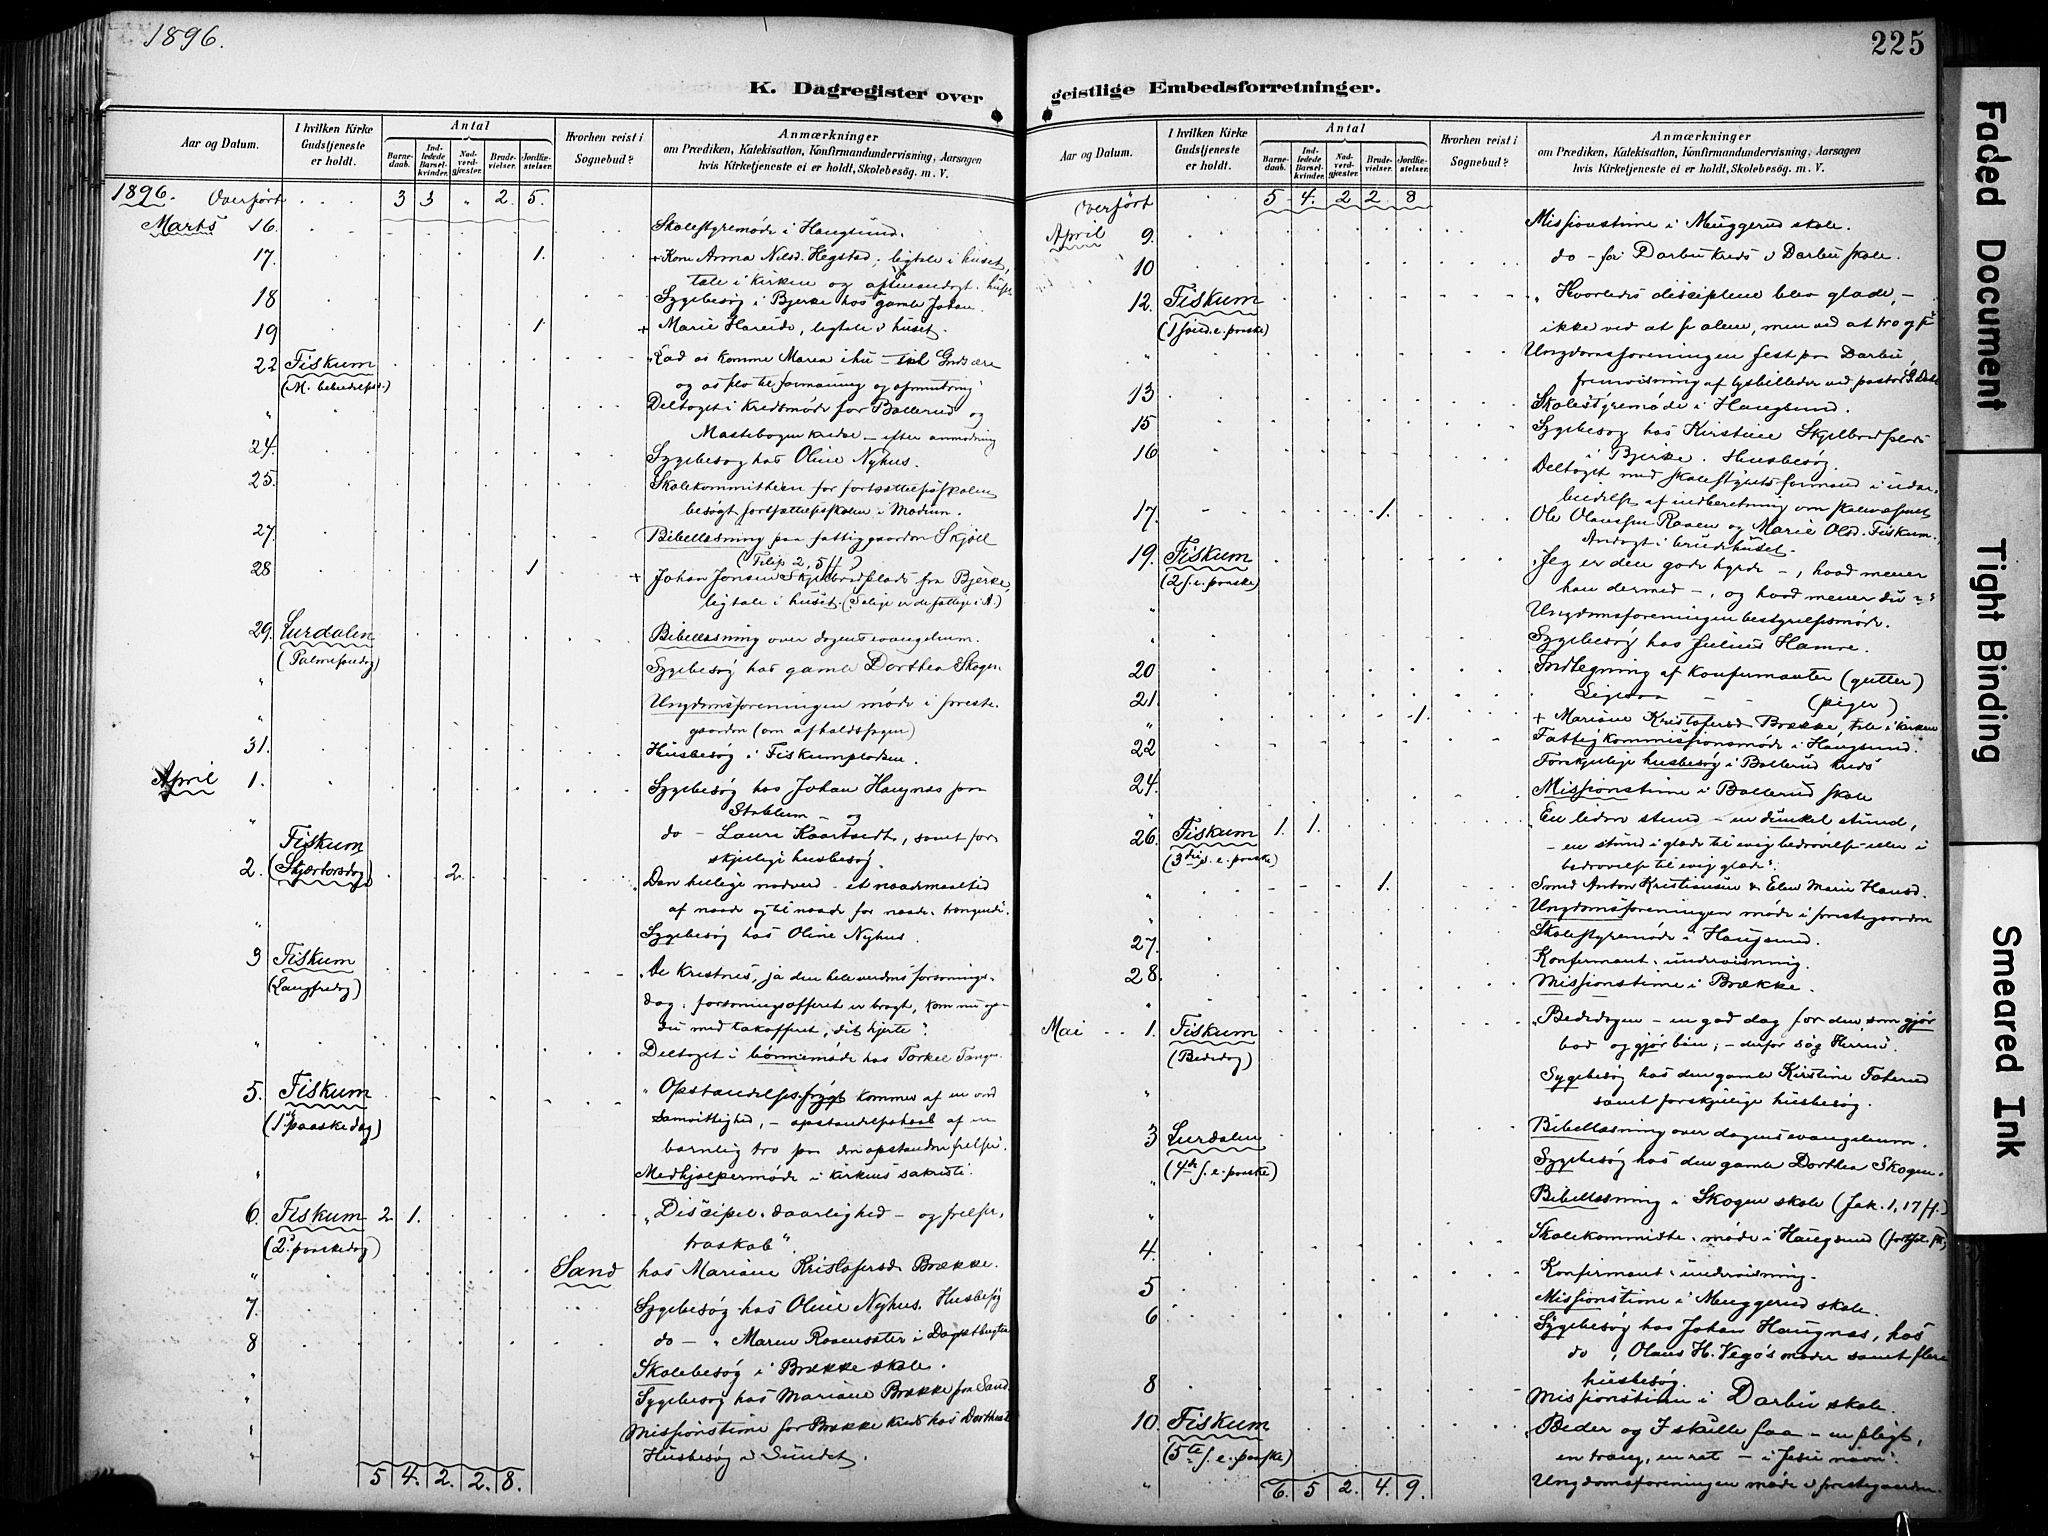 1896.
K. Dagregister over
Aar og Datum.
I hvilken Kirke Gudstjeneste er holdt.
Antal
Barnedaab.
Indledede Barselkvinder.
Nadverdgjæster.
Brudevielser.
Jordfæstelser.
Hvorhen reist i Sognebud?
Anmærkninger
om Prædiken, Katekisation, Konfirmandundervisning, Aarsagen
hvis Kirketjeneste ei er holdt, Skolebesøg. m. V.
1896. Overført 3 3 " 2. 5.
Marts 16. Skolestyremøde i Haugsund.
17. 1. + Kone Anna Nilsd. Hegstad; ligtale i huset,
tale i kirken og
18 Sygebesøg i Bjerke hos gamle Johan.
19 1. + Marie Hareide, ligtale i huset.
22 Fiskum "Lad os komme Maria ihu - Guds ære
(M. bebudelsesd.) og os sl. til formaning og opmuntring"
" Deltaget i kredsmøde for Bollerud og
Mastebogen kredse - efter anmodning
24. Sygebesøg hos Oline Nyhus.
25. Skolekommitheen for fortsættelsesskolen
besøgt fortsættelsesskolen i Modum.
27. Bibellæsning paa fattiggaarden Skjøll
(Filip 2, 5 ff)
28 1 + Johan Jonsen Skjelbredplads fra Bjerke,
ligtale i huset. (Salige er de fattige i A.)
29. Lurdalen Bibellæsning over dagens evangelium.
(Palmesøndag)
" Sygebesøg hos gamle Dorthea Skogen.
" Ungdomsforeningen møde i preste-
gaarden (om afholdssagen)
31. Husbesøg i Fiskumpladsen.
April 1. Sygebesøg hos Johan Haugnæs paa
Stablum - og
" do - Laura Kaartvedt, samt for-
skjellige husbesøg.
Fiskum
2. (Skjærtorsdag) 2. "Den hellige nadverd - et naademaaltid
af naade og til naade for naade-trængende".
" Sygebesøg hos Oline Nyhus.
3 Fiskum "De kristnes, ja den hele verdens forsonings-
(Langfredag) dag: forsoningsofferet er bragt, kom nu og-
du med takofferet, dit hjerte".
" Deltaget i bønnemøde hos Torkel Tangen
5. Fiskum "Opstandelsesfrygt kommer af en ond
(1ste paaskedag) samvittighed, - opstandelseshaab af en
barnlig tro paa den opstandne frelser".
" Medhjælpermøde i kirkens sakristi.
6. Fiskum 2 1. "Discipel-daarlighed - og frelser-
(2. paaskedag) troskab".
" Sand hos Mariane Kristofersd. Brække.
7. Sygebesøg hos Oline Nyhus. Husbesøg
8 do - " Maren Raaensæter i
" Skolebesøg i Brække skole.
" Sygebesøg hos Mariane Brække paa Sand.
" Missionstime for Brække kreds hos
" Husbesøg i Sundet.
5 4. 2. 2. 8.
225
geistlige Embedsforretninger.
Aar og Datum.
I hvilken Kirke Gudstjeneste er holdt.
Antal
Barnedaab.
Indledede Barselkvinder.
Nadverdgjæster.
Brudevielser.
Jordfæstelser.
Hvorhen reist i Sognebud?
Anmærkninger
om Prædiken, Katekisation, Konfirmandundervisning, Aarsagen
hvis Kirketjeneste ei er holdt, Skolebesøg. m. V.
Overført 5 4. 2 2. 8
April 9. Missionstime i Muggerud skole.
10 do - for Darbu kreds i Darbu skole.
12. Fiskum "Hvorledes disciplene blev glade, -
(1 sønd. e. paaske) ikke ved at se alene, men ved at tro og se
" Ungdomsforeningen fest paa Darbu,
fremvisning af lysbilleder ved pastor
13 Skolestyremøde i Haugsund.
15 Sygebesøg hos Kirstine Skjelbredplads
i Bjerke. Husbesøg.
16 Deltaget med skolestyrets formand i udar-
beidelse af indberetning om skolevæsenet
17. 1. Ole Olaussen Raaen og Marie Olsd. Fiskum.
Andagt i brudehuset.
19. Fiskum "Jeg er den gode hyrde -, hvad mener
(2 s. e. paaske) han dermed -, og hvad mener du -"
" Ungdomsforeningen bestyrelsesmøde.
" Sygebesøg hos Julius Hamre.
20 Indlegning af Konfirmanter (gutter)
21. Ligesaa - (piger)
" 1. + Mariane Kristofersd. Brække, tale i kirken
22 Fattigkommissionsmøde i Haugsund.
24. Forskjellige husbesøg i Bollerud kreds
" Missionstime i Bollerud skole
26. Fiskum 1. 1. "En liden stund - en dunkel stund,
(3die s. e. paaske) - en stund i glæde til evig bedrøvelse eller i
bedrøvelse til evig glæde".
" 1. Smed Anton Kristiansen & Elen Marie Hansd.
" Ungdomsforeningen møde i prestegaarden
27. Skolestyremøde i Haugsund.
28. Konfirmant-undervisning.
" Missionstime i Brække.
Mai 1. Fiskum "Bededagen - en god dag for den, som gjør
(Bededag) bod og gjør bøn; - derfor søg Herren".
" Sygebesøg hos den gamle Kirstine Foterud
samt forskjellige husbesøg.
3 Lurdalen Bibellæsning over dagens evangelium.
(4de s. e. paaske) Sygebesøg hos den gamle Dorthea Skogen.
" Bibellæsning i Skogen skole (Jak. 1, 17 ff.)
4. Skolekommitte-møde i Haugsund
5 Konfirmant-undervisning.
6 Missionstime i Muggerud skole.
Sygebesøg hos Johan Haugnæs, hos
do, Olaus H. Vegø's moder samt flere
husbesøg.
8 Missionstime i Darbu skole.
10. Fiskum "Beder og I skulle faa - en pligt,
(5te s. e. paaske) en trang, en ret - i Jesu navn".
" 6. 5 2. 4. 9. Ungdomsforeningen møde i prestegaarden.
Faded Document
Tight Binding
Smeared Ink